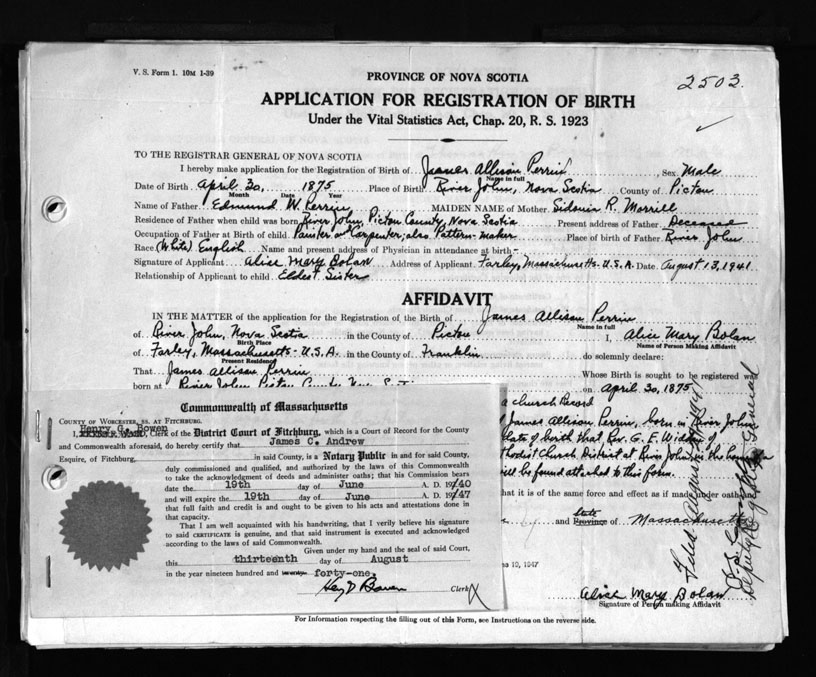 V. S. Form 1. 10M 1-39
2503.
PROVINCE OF NOVA SCOTIA
APPLICATION FOR REGISTRATION OF BIRTH
Under the Vital Statistics Act, Chap. 20, R. S. 1923
TO THE REGISTRAR GENERAL OF NOVA SCOTIA
I hereby make application for the Registration of Birth of James Allison Perrin, Sex Male
Name in full
Date of Birth April 30, 1875 Place of Birth River John, Nova Scotia County of Pictou
Month Date Year
Name of Father Edmund W. Perrin MAIDEN NAME of Mother Sidonia R. Morrill
Residence of Father when child was born River John, Pictou County, Nova Scotia Present address of Father Deceased
Occupation of Father at Birth of child Painter and Carpenter, also Pattern-maker Place of birth of Father River John
Race (White) English Name and present address of Physician in attendance at birth -
Signature of Applicant Alice Mary Bolan Address of Applicant Farley, Massachusetts- U.S.A. Date August 13, 1941
Relationship of Applicant to child Eldest Sister
AFFIDAVIT
IN THE MATTER of the application for the Registration of the Birth of James Allison Perrin
Name in full
of River John, Nova Scotia in the County of Pictou I, Alice Mary Bolan
Birth Place
Name of Person Making Affidavit
of Farley, Massachusetts- U.S.A. in the County of Franklin do solemnly declare:
Present Residence
That James Allison Perrin Whose Birth is sought to be registered was
born at River John on April 30, 1875
a Church Record
James Allison Perrin, born in River John
date of birth that Rev. G. E. of
Church District at River John
will be found attached to this form.
hat it is of the same force and effect as if made under oath and
and State Province of Massachusetts
10, 1947
Alice Mary Bolan
Signature of Person making Affidavit
Filed August 1941
Deputy Registrar General
Commonwealth of Massachusetts
COUNTY OF WORCESTER, SS. AT FITCHBURG.
I, Henry G. Bowen, Clerk of the District Court of Fitchburg, which is a Court of Record for the County
and Commonwealth aforesaid, do hereby certify that James C. Andrew
Esquire, of Fitchburg, in said County, is a Notary Public in and for said County,
duly commissioned and qualified, and authorized by the laws of this Commonwealth
to take the acknowledgment of deeds and administer oaths; that his Commission bears
date the 19th day of June A. D. 1940
and will expire the 19th day of June A. D. 1947
that full faith and credit is and ought to be given to his acts and attestations done in
that capacity.
That I am well acquainted with his handwriting, that I verily believe his signature
to said CERTIFICATE is genuine, and that said instrument is executed and acknowledged
according to the laws of said Commonwealth.
Given under my hand and the seal of said Court,
this thirteenth day of August
in the year nineteen hundred and twenty- forty-one.
Clerk
For Information respecting the filling out of this Form, see Instructions on the reverse side.